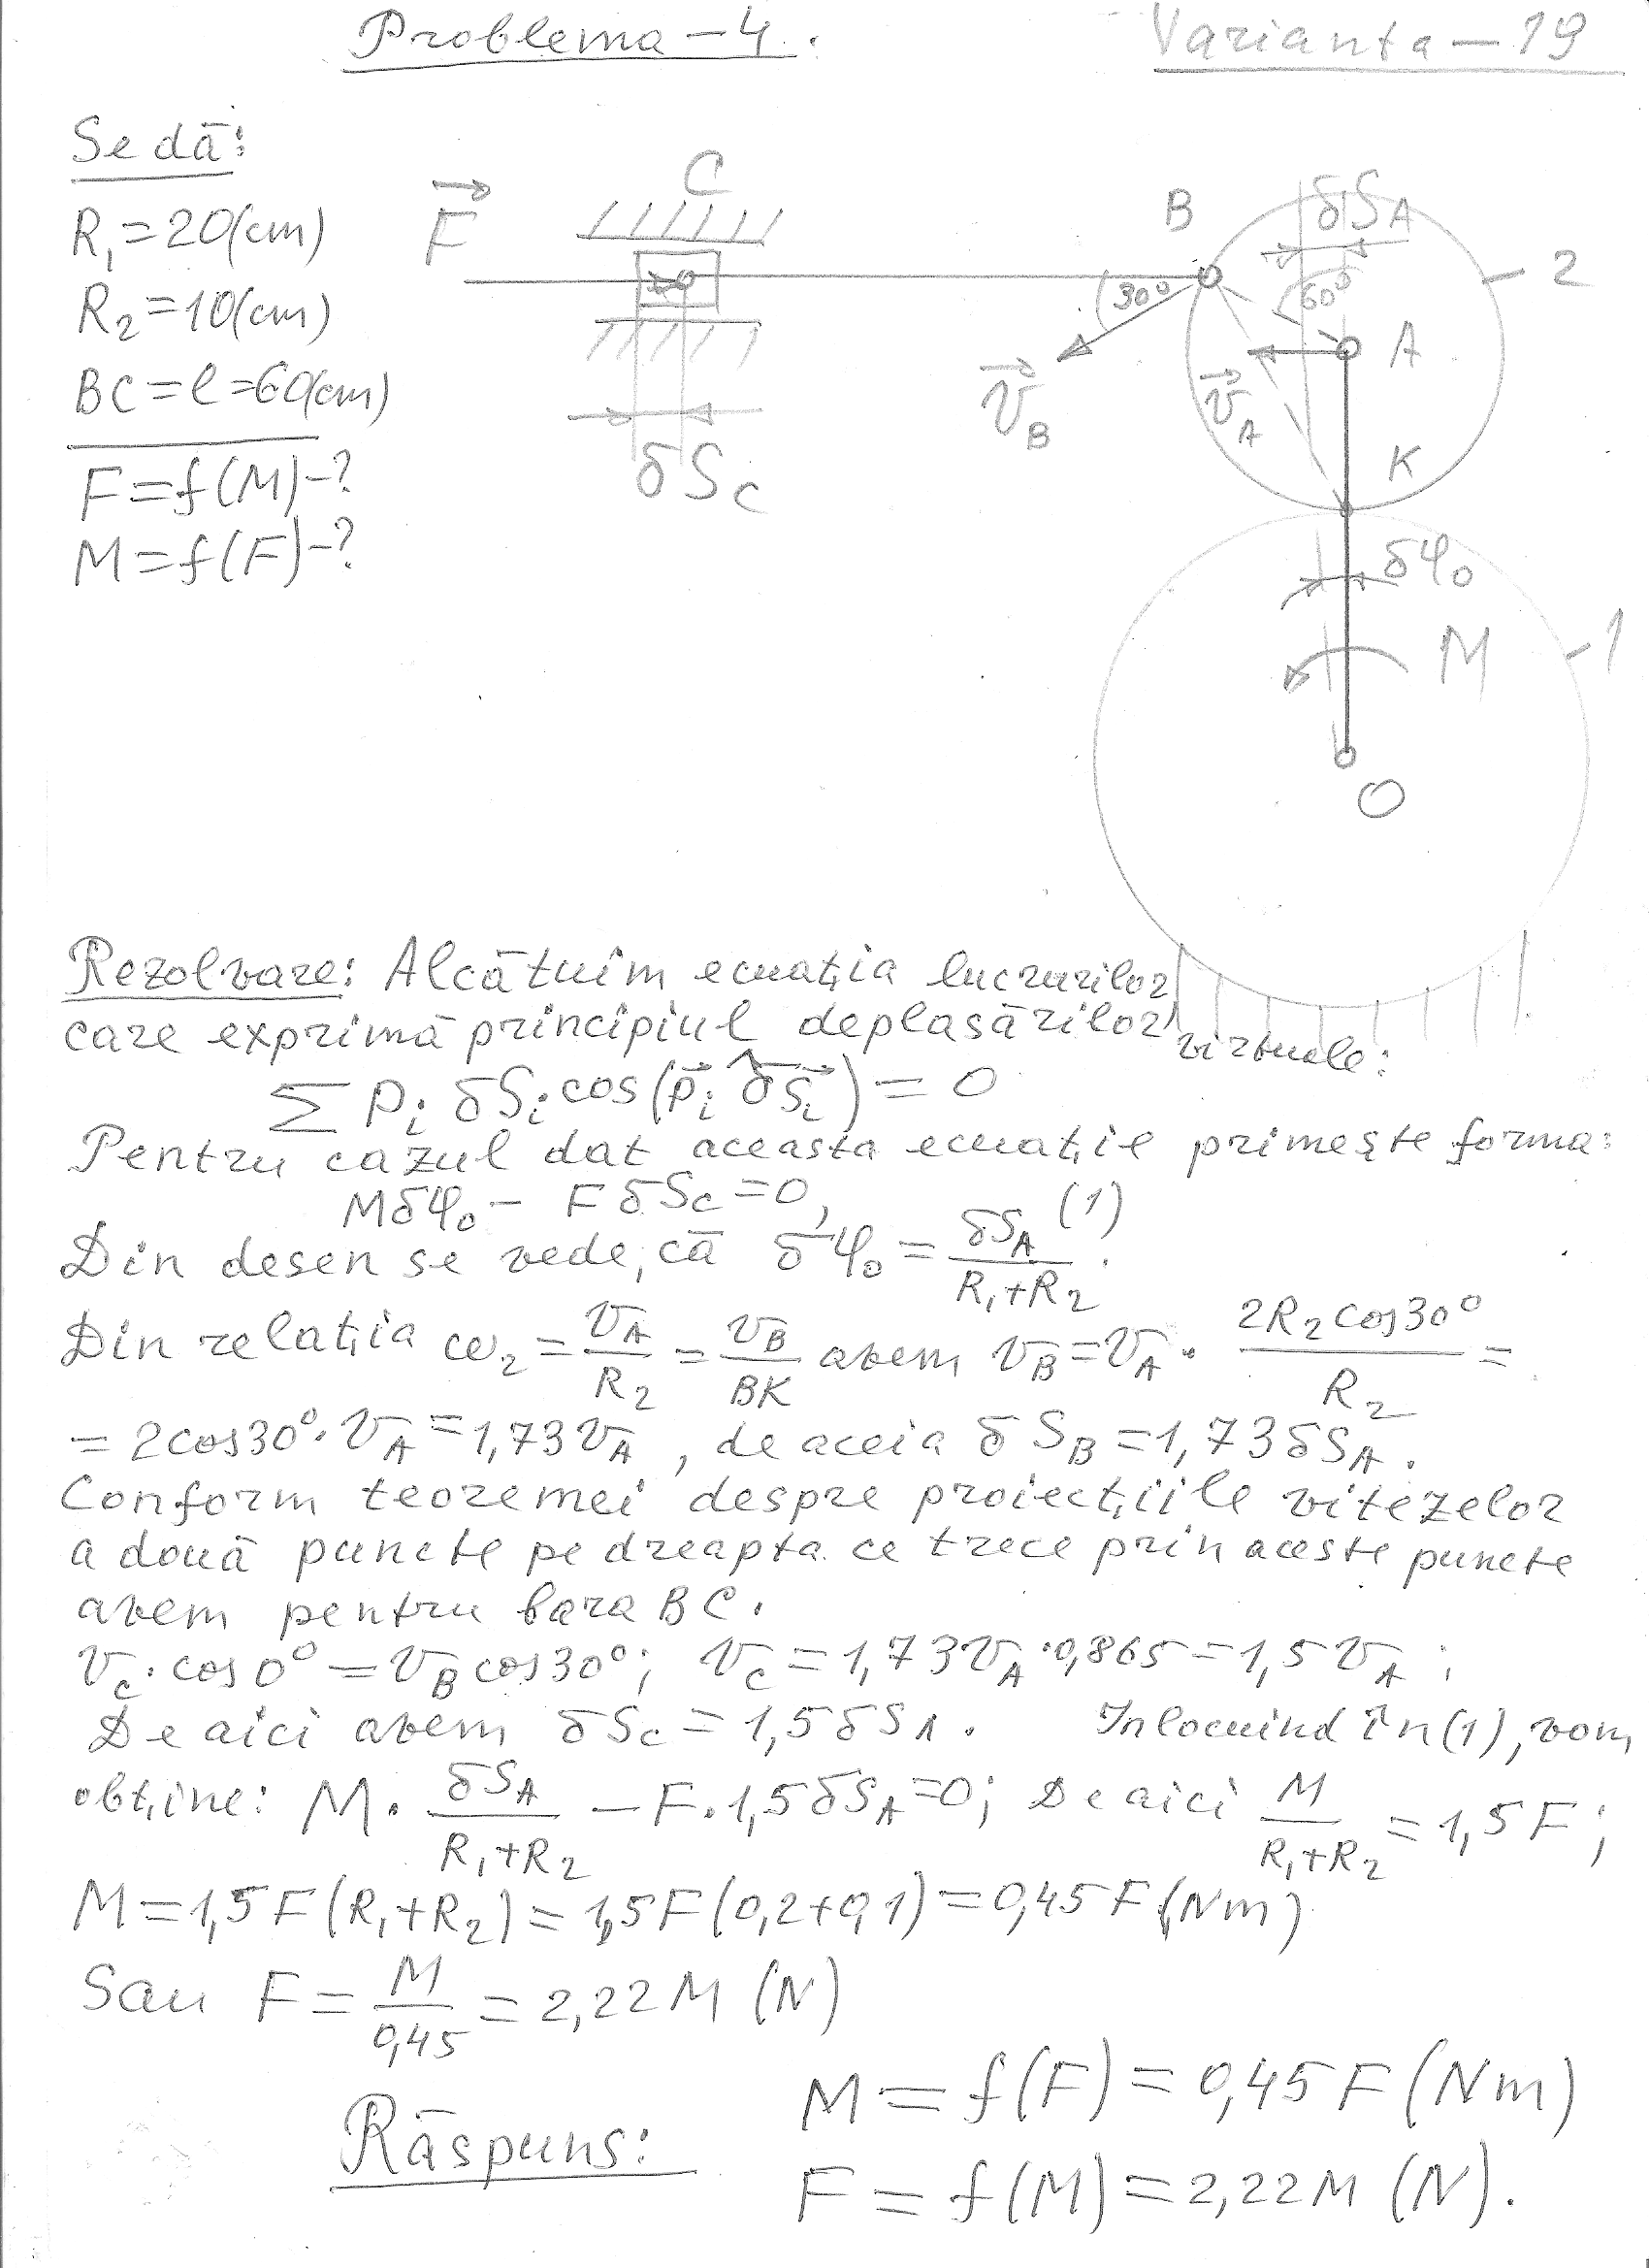 Problema – 4.
Varianta – 19
Se dă:
R₁=20(cm)
R₂=10(cm)
BC=l=60(cm)
F=f(M)-?
M=f(F)-?
F⃗
C
δS_C
B
30°
60°
v⃗_B
v⃗_A
δS_A
2
A
K
δφ₀
M
1
O
Rezolvare: Alcătuim ecuația lucrurilor
care exprimă principiul deplasărilor virtuale:
Σ Pᵢ δSᵢ cos(p⃗ᵢ ^ δS⃗ᵢ) = 0
Pentru cazul dat aceasta ecuație primește forma:
Mδφ₀ – FδS_C = 0, (1)
Din desen se vede, că δφ₀ = δS_A / (R₁+R₂).
Din relația ω₂ = v_A / R₂ = v_B / BK avem v_B = v_A · 2R₂cos30° / R₂ =
= 2cos30°·v_A = 1,73v_A, de aceia δS_B = 1,73δS_A.
Conform teoremei despre proiecțiile vitezelor
a două puncte pe dreapta ce trece prin aceste puncte
avem pentru bara BC.
v_C·cos0° = v_B cos30°; v_C = 1,73v_A·0,865 = 1,5v_A;
De aici avem δS_C = 1,5δS_A. Inlocuind în (1), vom
obține: M · δS_A / (R₁+R₂) – F·1,5δS_A = 0; De aici M / (R₁+R₂) = 1,5F;
M = 1,5F(R₁+R₂) = 1,5F(0,2+0,1) = 0,45F (Nm)
Sau F = M / 0,45 = 2,22M (N)
Răspuns:
M = f(F) = 0,45F (Nm)
F = f(M) = 2,22M (N).